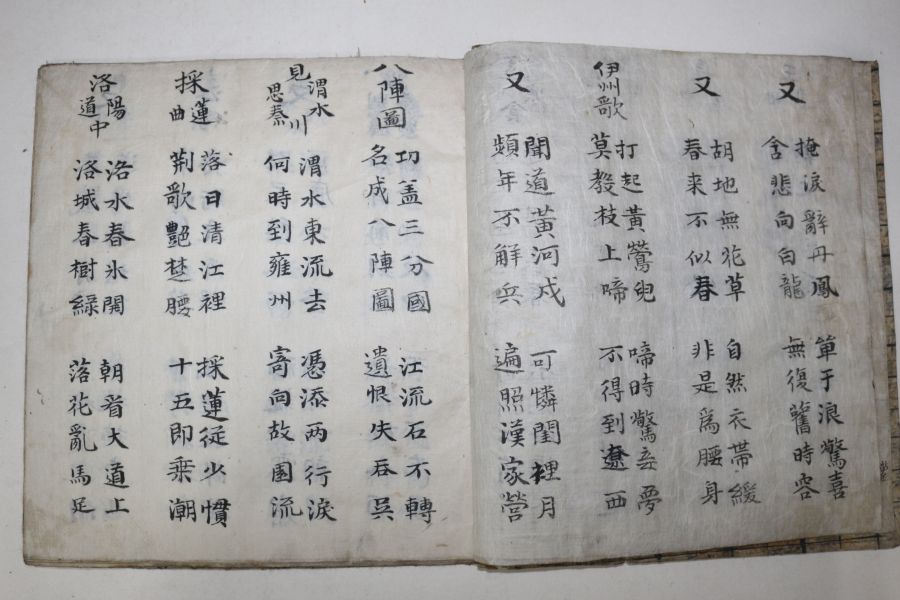 又
掩淚辭丹鳳
含悲向白龍
單于浪驚喜
無復舊時容
又
胡地無花草
春来不似春
自然衣帶緩
非是爲腰身
伊州歌
打起黃鶯兒
莫敎枝上啼
啼時驚妾夢
不得到遼西
又
聞道黃河戍
頻年不解兵
可憐閨裡月
遍照漢家營
八陣圖
功盖三分國
名成八陣圖
江流石不轉
遺恨失吞吳
見渭水思秦川
渭水東流去
何時到雍州
憑添两行淚
寄向故園流
採蓮曲
落日清江裡
荆歌艶楚腰
採蓮從少慣
十五即乗潮
洛陽道中
洛水春氷開
洛城春樹綠
朝看大道上
落花亂馬足